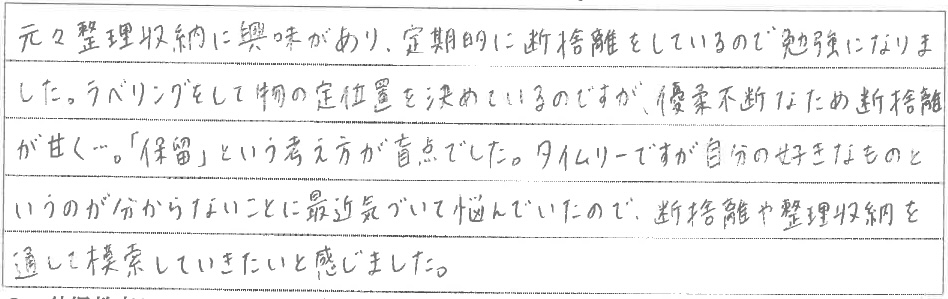 元々整理収納に興味があり、定期的に断捨離をしているので勉強になりま
した。ラベリングをして物の定位置を決めているのですが、優柔不断なため断捨離
が甘く…。「保留」という考え方が盲点でした。タイムリーですが自分の好きなものと
いうのが分からないことに最近気づいて悩んでいたので、断捨離や整理収納を
通して模索していきたいと感じました。